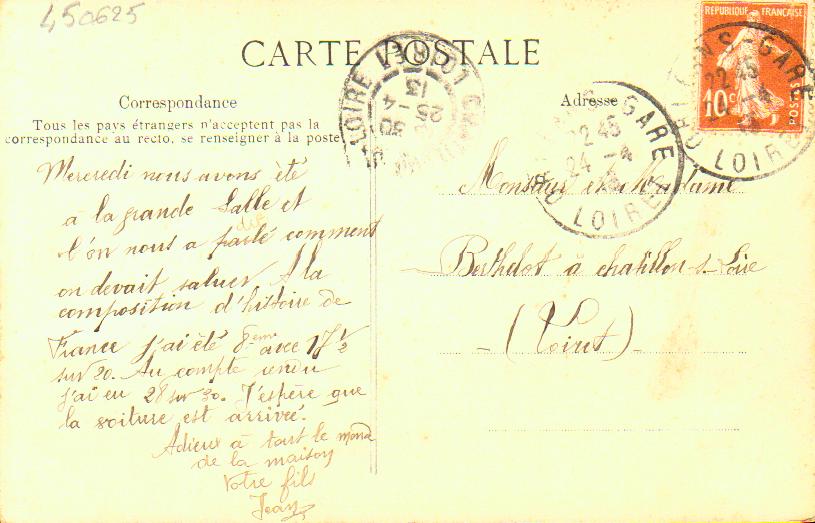 450625
CARTE POSTALE
RÉPUBLIQUE FRANÇAISE
10c
POSTES
GARE
22 45
LOIRE
GARE
2 45
24 -4
LOIRE
LOIRE
13
25 -4
Correspondance
Tous les pays étrangers n'acceptent pas la
correspondance au recto, se renseigner à la poste
Mercredi nous avons été
à la grande Salle et
l'on nous a parlé comment
on devait saluer A la
composition d'histoire de
France j'ai été 8eme avec 17 1/2
sur 20. Au compte rendu
j'ai eu 28 sur 30. J'espère que
la voiture est arrivée.
Adieux à tout le monde
de la maison
Votre fils
Jean
Adresse
Monsieur et Madame
Berthelot à chatillon-s-Loire
(Loiret)